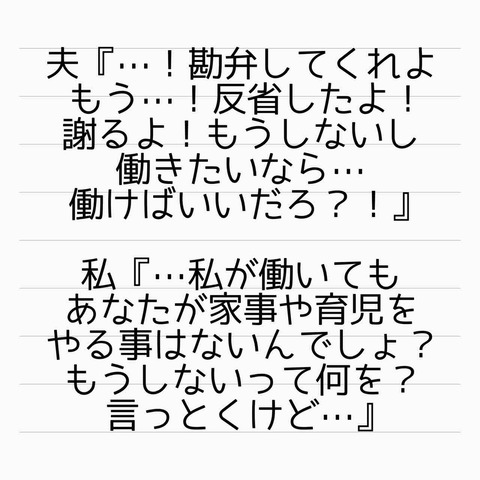 夫『…！勘弁してくれよ
もう…！反省したよ！
謝るよ！もうしないし
働きたいなら…
働けばいいだろ？！』
私『…私が働いても
あなたが家事や育児を
やる事はないんでしょ？
もうしないって何を？
言っとくけど…』